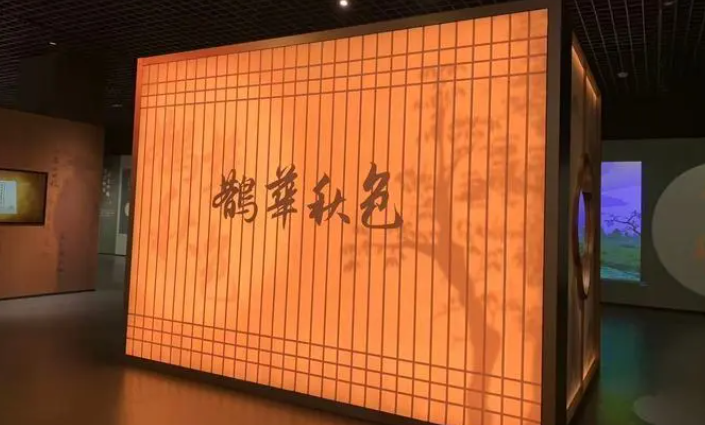 鵲華秋色